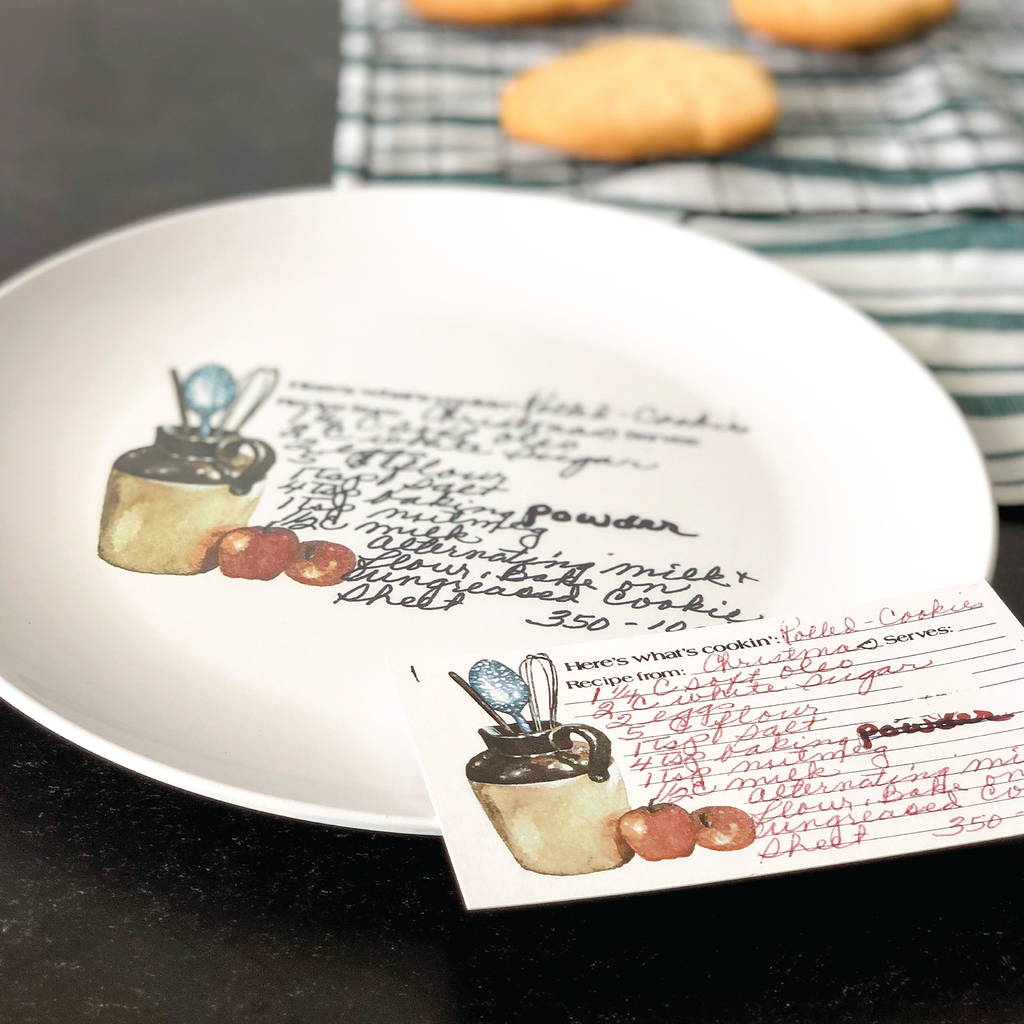 Rolled-Cookies
Christmas
1 1/4 C soft oleo
2 C white sugar
flour
1 tsp salt
4 tsp baking powder
1 tsp nutmeg
1/2 c milk
alternating milk +
flour. Bake on
ungreased Cookie
Sheet 350-10
Here's what's cookin': Rolled-Cookies
Recipe from: Christmas Serves:
1 1/4 C soft oleo
2 C white sugar
2 eggs
5 C flour
1 tsp salt
4 tsp baking powder
1 tsp nutmeg
1/2 c milk
alternating mi
flour. Bake on
ungreased Co
Sheet 350-